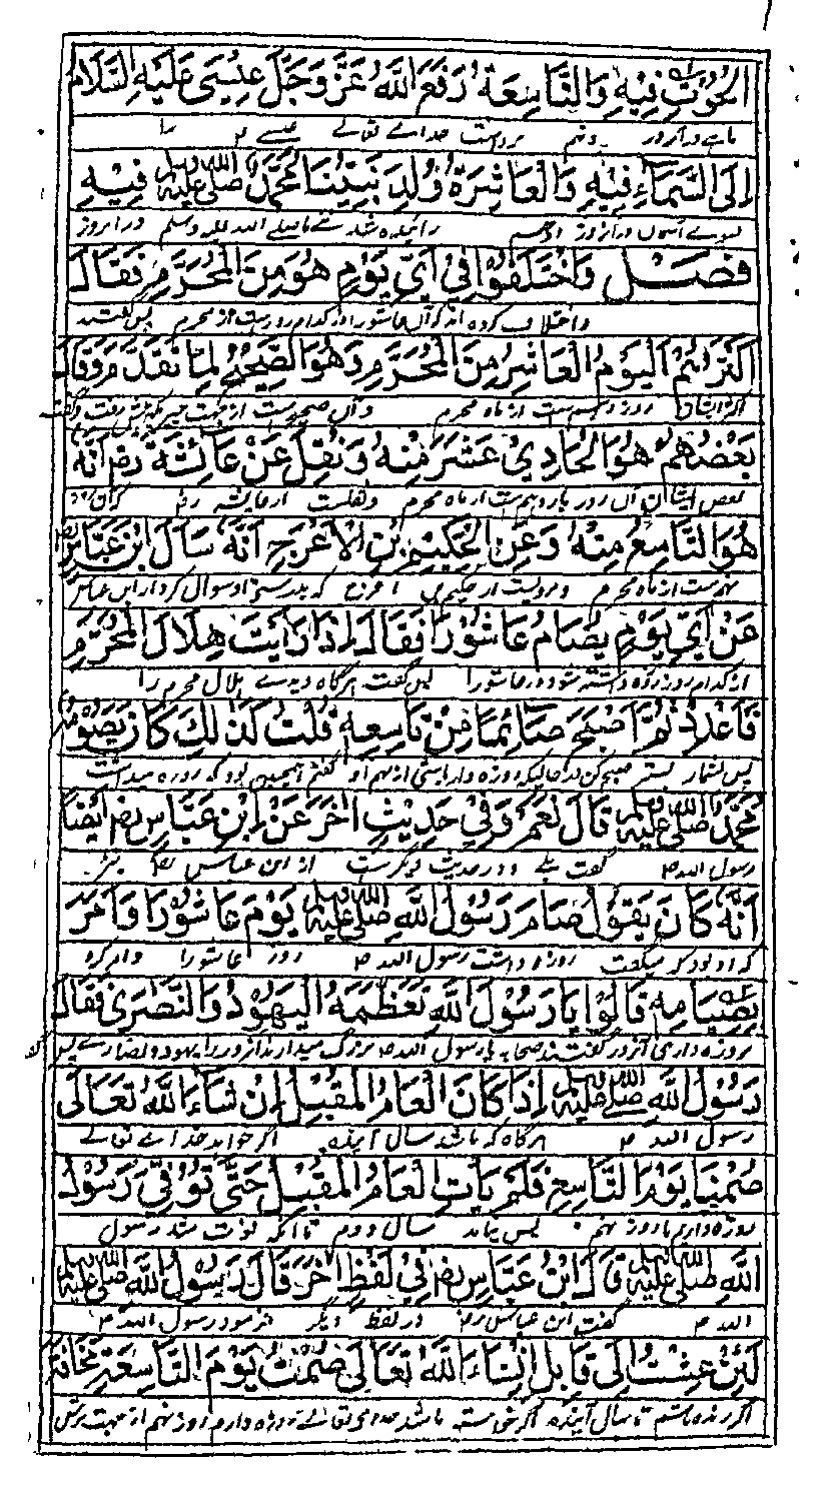 الحُوْتِ فِيْهِ وَالتَّاسِعَةُ رَفَعَ اللّٰهُ عَزَّ وَجَلَّ عِيْسَى عَلَيْهِ السَّلَامُ
برداشت خداے تعالے عیسے ۴ را
اِلَى السَّمَاءِ فِيْهِ وَالْعَاشِرَةُ وُلِدَ نَبِيُّنَا مُحَمَّدٌ صلى الله عليه وسلم فِيْهِ
بسوے آسمان درآنروز زائیدہ شد صلے اللہ علیہ وسلم درانروز
فَصْل وَاخْتَلَفُوْا فِيْ اَيِّ يَوْمٍ هُوَ مِنَ الْمُحَرَّمِ فَقَالَ
واختلاف کردہ اند کہ آن عاشورا در کدام روز ست از محرم پس گفتند
اَكْثَرُهُمْ اَلْيَوْمُ الْعَاشِرُ مِنَ الْمُحَرَّمِ وَهُوَ الصَّحِيْحُ لِمَا تَقَدَّمَ وَقَالَ
اکثر ایشان روز دہم ست از ماہ محرم وآن صحیح ست
بَعْضُهُمْ هُوَ الْحَادِيْ عَشَرَ مِنْهُ وَنُقِلَ عَنْ عَائِشَةَ رض اَنَّهُ
بعض ایشان آن روز یازدہم ست از ماہ محرم ونقلست از عایشہ رض کہ آن
هُوَ التَّاسِعُ مِنْهُ وَعَنِ الْحَكِيْمِ بْنِ الْاَعْرَجِ اَنَّهُ سَاَلَ ابْنَ عَبَّاسٍ رض
نہم ست از ماہ محرم ومرویست از حکیم بن اعرج کہ بدرستیکہ او سوال کرد از ابن عباس
عَنْ اَيِّ يَوْمٍ يُصَامُ عَاشُوْرَا فَقَالَ اِذَا رَاَيْتَ هِلَالَ الْمُحَرَّمِ
از کدام روز روزہ داشتہ شود در عاشورا پس گفت ہرگاہ دیدے ہلال محرم را
فَاعْدُدْ ثُمَّ اَصْبِحْ صَائِمًا مِنْ تَاسِعِهِ قُلْتُ كَذٰلِكَ كَانَ يَصُوْمُ
پس بشمار پستر صبح کن در حالیکہ روزہ دار باشی از نہم او گفتم آیا ہمچنین بود کہ روزہ میداشت
مُحَمَّدٌ صلى الله عليه وسلم قَالَ نَعَمْ وَفِيْ حَدِيْثٍ اٰخَرَ عَنْ اِبْنِ عَبَّاسٍ رض اَيْضًا
رسول اللہ ۴ گفت بلے ودر حدیث دیگرست از ابن عباس رض نیز
اَنَّهُ كَانَ يَقُوْلُ صَامَ رَسُوْلُ اللّٰهِ صلى الله عليه وسلم يَوْمَ عَاشُوْرَا وَاَمَرَ
کہ او بود کہ میگفت روزہ داشت رسول اللہ ۴ روز عاشورا وامر کرد
بِصِيَامِهِ قَالُوْا يَا رَسُوْلَ اللّٰهِ تُعَظِّمُهُ الْيَهُوْدُ وَالنَّصَرٰى فَقَالَ
بروزہ داری آنروز گفتند صحابہ یا رسول اللہ بزرگ میدارند آنروز را یہود ونصارے پس گفت
رَسُوْلُ اللّٰهِ صلى الله عليه وسلم اِذَا كَانَ الْعَامُ الْمُقْبِلُ اِنْ شَاءَ اللّٰهُ تَعَالٰى
رسول اللہ ۴ ہرگاہ کہ باشد سال آیندہ اگر خواہد خداے تعالے
صُمْنَا يَوْمَ التَّاسِعِ فَلَمْ يَاْتِ الْعَامُ الْمُقْبِلُ حَتّٰى تُوُفِّيَ رَسُوْلُ
روزہ داریم ما روز نہم پس نیامد سال دوم تا آنکہ فوت شد رسول
اللّٰهِ صلى الله عليه وسلم قَالَ ابْنُ عَبَّاسٍ رض فِيْ لَفْظٍ اٰخَرَ قَالَ رَسُوْلُ اللّٰهِ صلى الله عليه وسلم
اللہ ۴ گفت ابن عباس رض در لفظ دیگر فرمود رسول اللہ ۴
لَئِنْ عِشْتُ اِلٰى قَابِلٍ اِنْ شَاءَ اللّٰهُ تَعَالٰى صُمْتُ يَوْمَ التَّاسِعَةِ مَخَافَةَ
اگر زندہ باشم تا سال آیندہ اگر خواستہ باشد خداے تعالے روزہ دارم روز نہم از جہت ترس